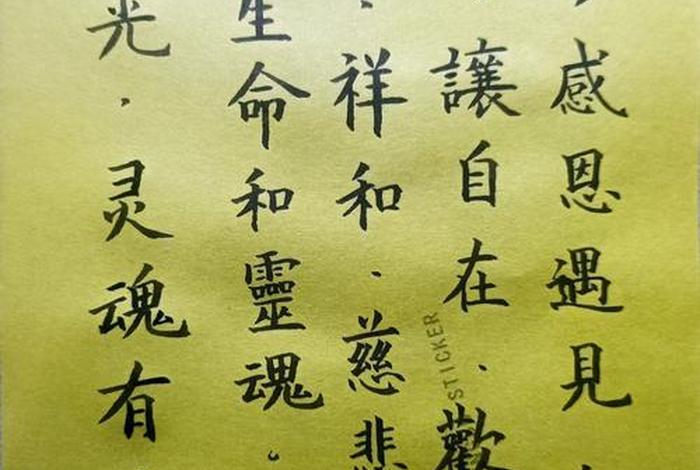 感恩遇見
讓自在·歡
·祥和·慈悲
生命和靈魂。
光·灵魂有
STICKER